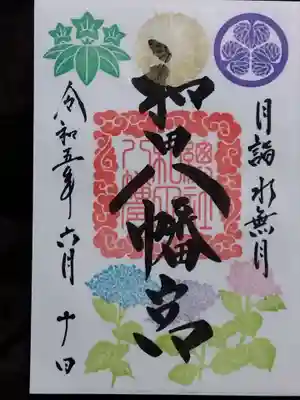 月詣 水無月
和田八幡宮
令和五年 六月 十日